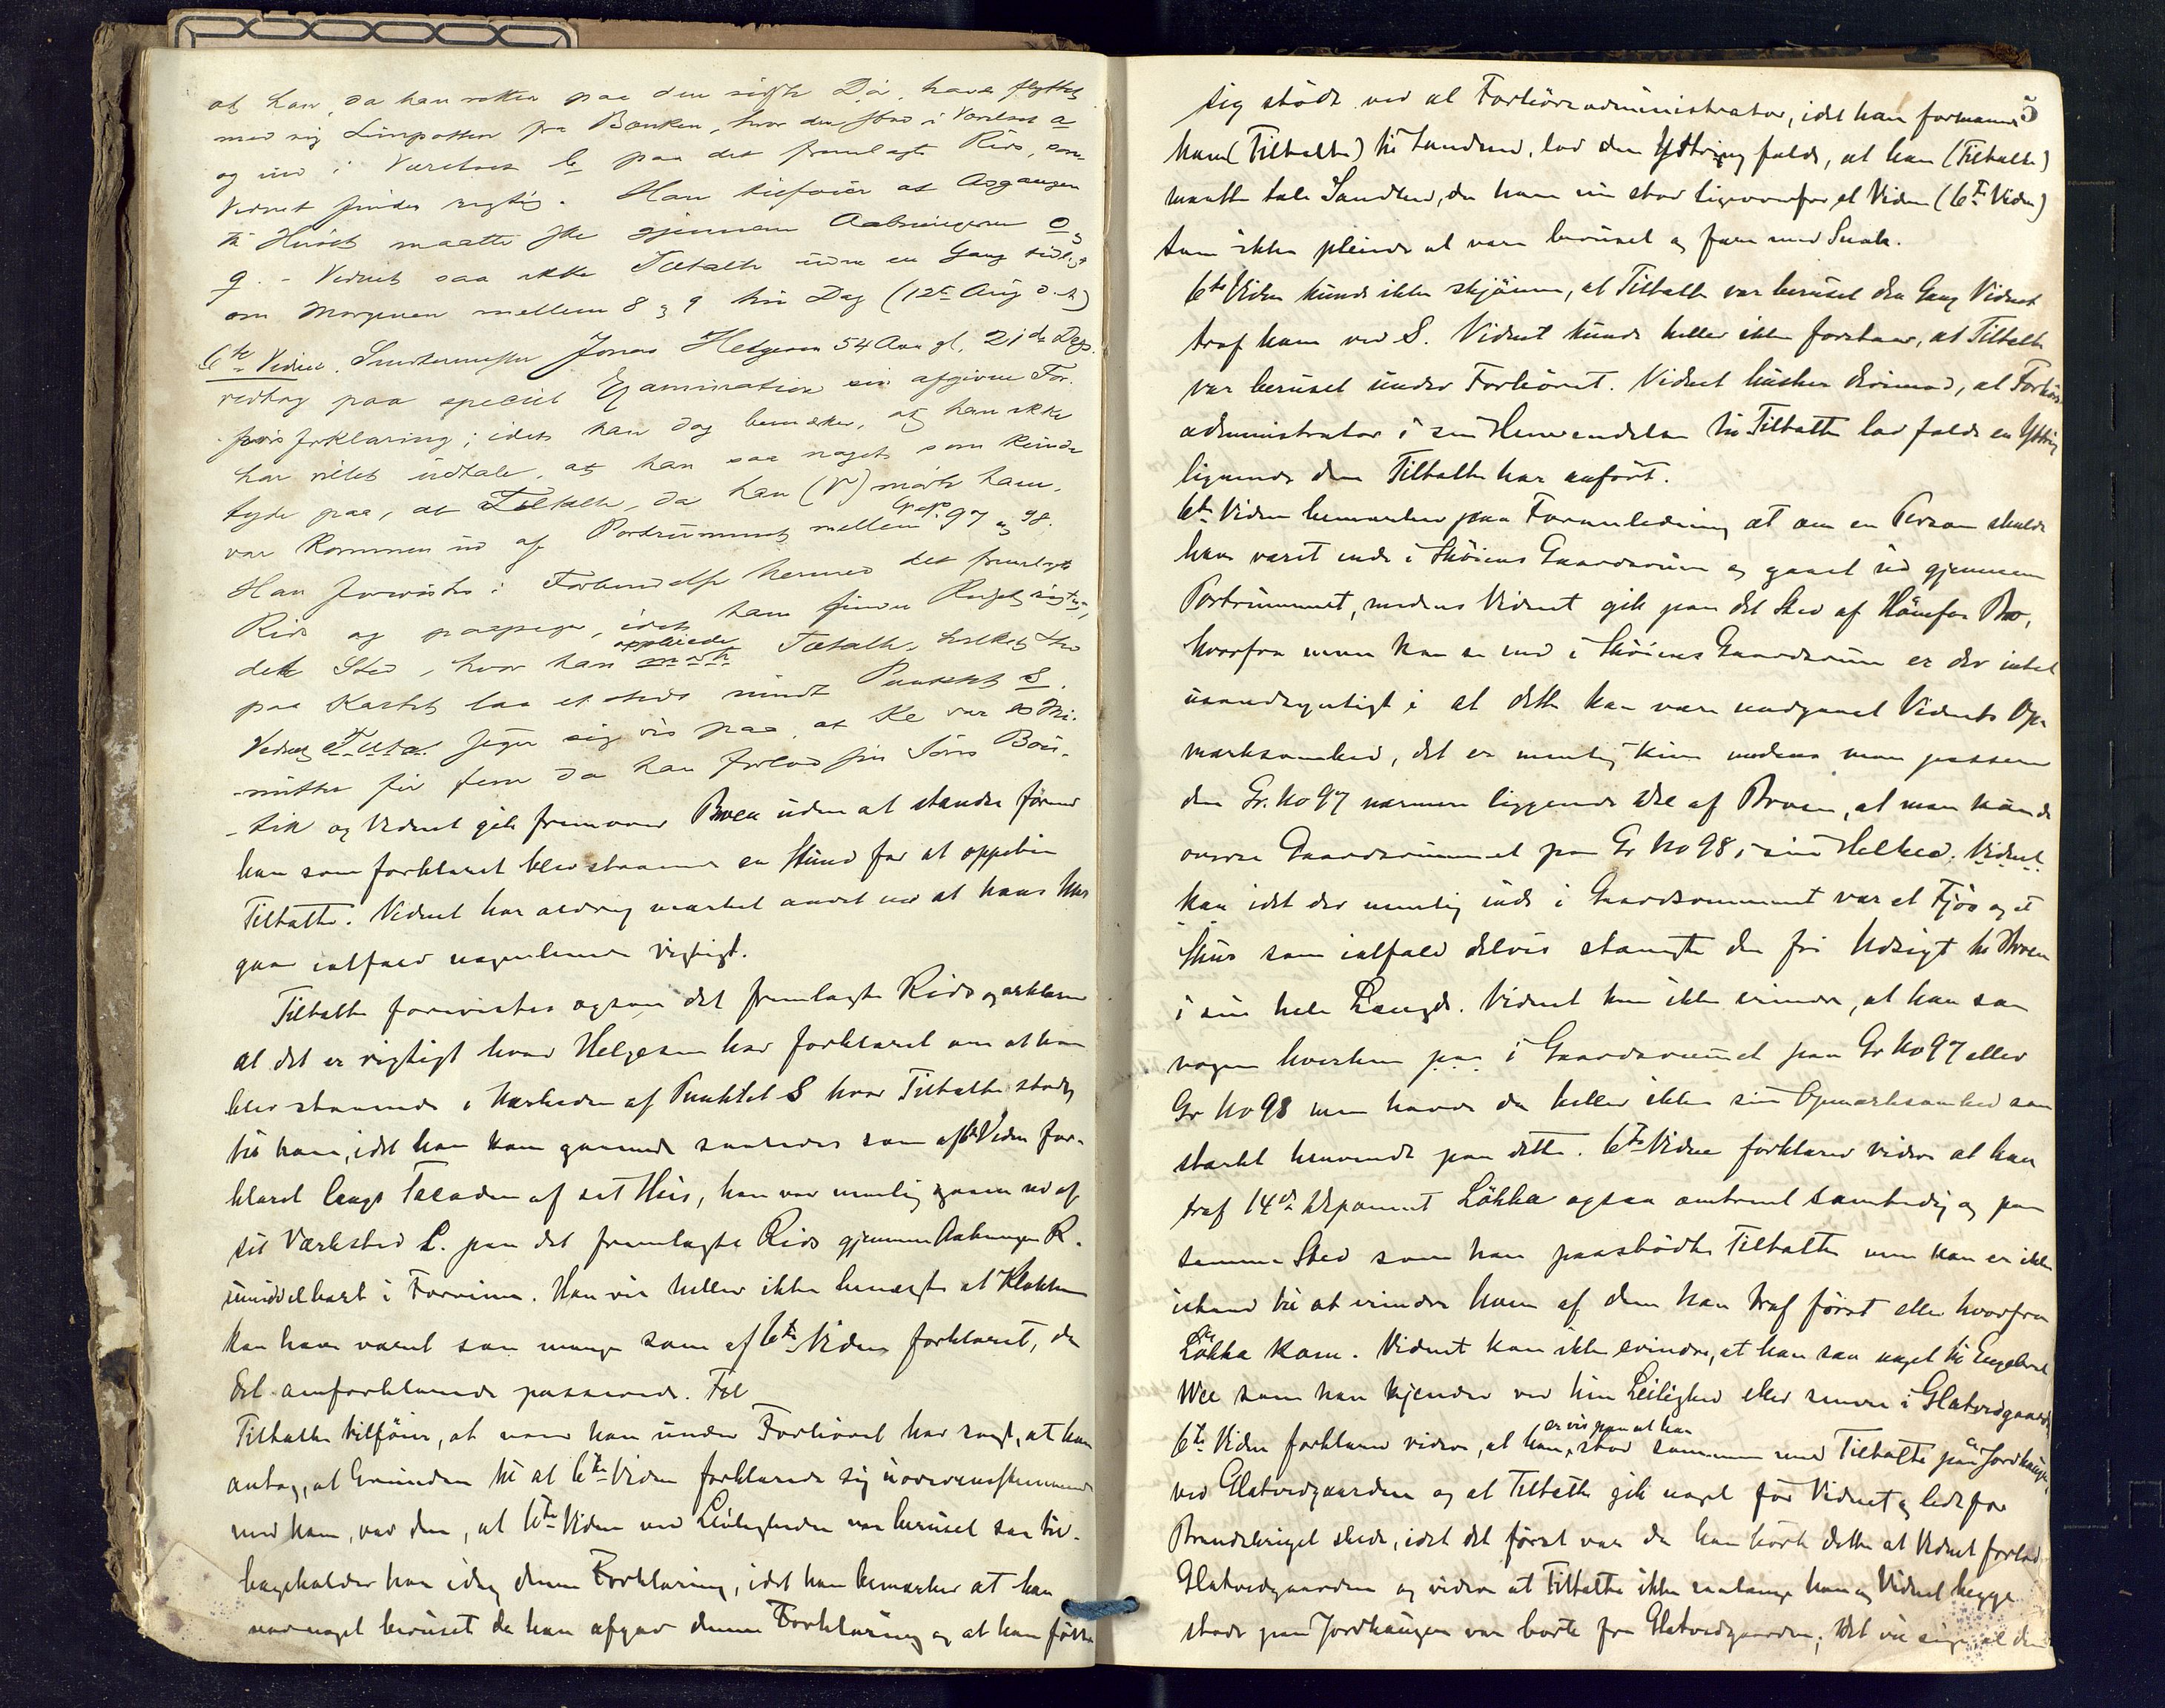 at han, da han rettes paa den Dør, havde flyttet
med sig Limpotten fra Bænken, hvor den stod i Værelset a
og ind i Værelset b paa det fremlagte Rids, som
Vidnet finder rigtig. Han tilføier at Adgangen
til Huset maatte ske gjennem Aabningerne o og
q. - Vidnet saa ikke Tiltalte uden en Gang tidligt
om Morgenen mellem 8 og 9 hin Dag (12te Aug d. A)
6te Vidne. Snedkermester Jonas Helgesen 54 Aar gl. 21de Dep.
vedtog paa speciel Examination sin afgivne For-
forklaring; idet han dog bemærker, at han ikke
har villet udtale, at han saa noget som kunde
tyde paa, at Tiltalte, da han (V) mødte ham,
var kommen ud af Portrummet mellem Gr No 97 og 98.
Han forevistes i Forbindelse hermed det fremlagte
Rids og paapeger, idet han finder Ridset rigtigt,
dette Sted, hvor han oppebiede Tiltalte, hvilket Sted
paa Kartet laa et Steds rundt Punktet S.
Vidnet siger sig vis paa, at Kl var 20 Mi-
nutter før fem da han forlod sin Søns Bou-
tik og Vidnet gik fremover Broen uden at standse førend
han som forklaret blev staaende en Stund for at oppebie
Tiltalte. Vidnet har aldrig mærket andet end at hans Uhr
gaar ialfald nogenlunde rigtigt.
Tiltalte forevistes ogsaa det fremlagte Rids og erklærer
at det er rigtigt hvad Helgesen har forklaret om at han
blev staaende i Nærheden af Punktet S hvor Tiltalte stødte
til ham, idet han kom gaaende saaledes som af 6te Vidne for-
klaret langs Facaden af sit Hus, han var nemlig gaaen ud af
sit Værksted L. paa det fremlagte Rids gjennem Aabningen R.
umiddelbart i Forveien. Han vil heller ikke benægte at Klokken
kan have været saa mange som af 6te Vidne forklaret, da
det omforklarede passerede.
Tiltalte tilføier, at naar han under Forhøret har sagt, at han
antog, at Grunden til at 6te Vidne forklarede sig uoverensstemmende
med ham, var den, at 6te Vidne ved Leiligheden var beruset saa til-
bageholder han idag denne Forklaring, idet han bemærker at han
var noget beruset da han afgav denne Forklaring og at han følte
5
sig stødt ved at Forhørsadministrator, idet han formanede
ham (Tiltalte) til Sandhed, lod den Yttring falde, at han (Tiltalte)
maatte tale Sandhed, da han nu stod ligeoverfor et Vidne (6te Vidne)
som ikke pleiede at være beruset og fare med Snak.
6te Vidne kunde ikke skjønne, at Tiltalte var beruset den Gang Vidnet
traf ham ved S. Vidnet kunde heller ikke forstaa, at Tiltalte
var beruset under Forhøret. Vidnet husker derimod, at Forhørs-
administrator i sin Henvendelse til Tiltalte lod falde en Yttring
lignende den Tiltalte har anført.
6te Vidne bemærker paa Foranledning at om en Person skulde
have været inde i Skøiens Gaardsrum og gaaet ud gjennem
Portrummet, medens Vidnet gik paa det Sted af Hönefos Bro,
hvorfra man kan se ind i Skøiens Gaardsrum er der intet
usandsynligt i at dette kan være undgaaet Vidnets Op-
mærksomhed, det er nemlig kun medens man passerer
den Gr. No 97 nærmere liggende Del af Broen, at man kunde
overse Gaardsrummet paa Gr No 98 i sin Helhed. Vidnet
kan idet der nemlig inde i Gaardsrummet var et Fjøs og et
Skur som ialfald delvis stængte den fri Udsigt til Broen
i sin hele Længde. Vidnet kan ikke erindre, at han saa
nogen hverken paa i Gaardsrummet paa Gr No 97 eller
Gr No 98 men havde da heller ikke sin Opmærksomhed saa
stærkt henvendt paa dette. 6te Vidne forklarer videre at han
traf 14de Deponent Løkka ogsaa omtrent samtidig og paa
samme Sted som han paastødte Tiltalte men han er ikke
istand til at erindre hvem af dem han traf først eller hvorfra
Løkka kom. Vidnet kan ikke erindre, at han saa noget til Engebret
Wee som han kjender ved hin Leilighed eller senere i Glatvedgaarden
6te Vidne forklarer videre, at han er vis paa at han stod sammen med Tiltalte paa Jordhaugen
ved Glatvedgaarden og at Tiltalte gik noget før Vidnet og ledt for
Brandskriget skede, idet det først var da han hørte dette at Vidnet forlod
Glatvedgaarden og videre at Tiltalte ikke saalænge han og Vidnet begge
stode paa Jordhaugen var borte fra Glatvedgaarden; det vil sige at den